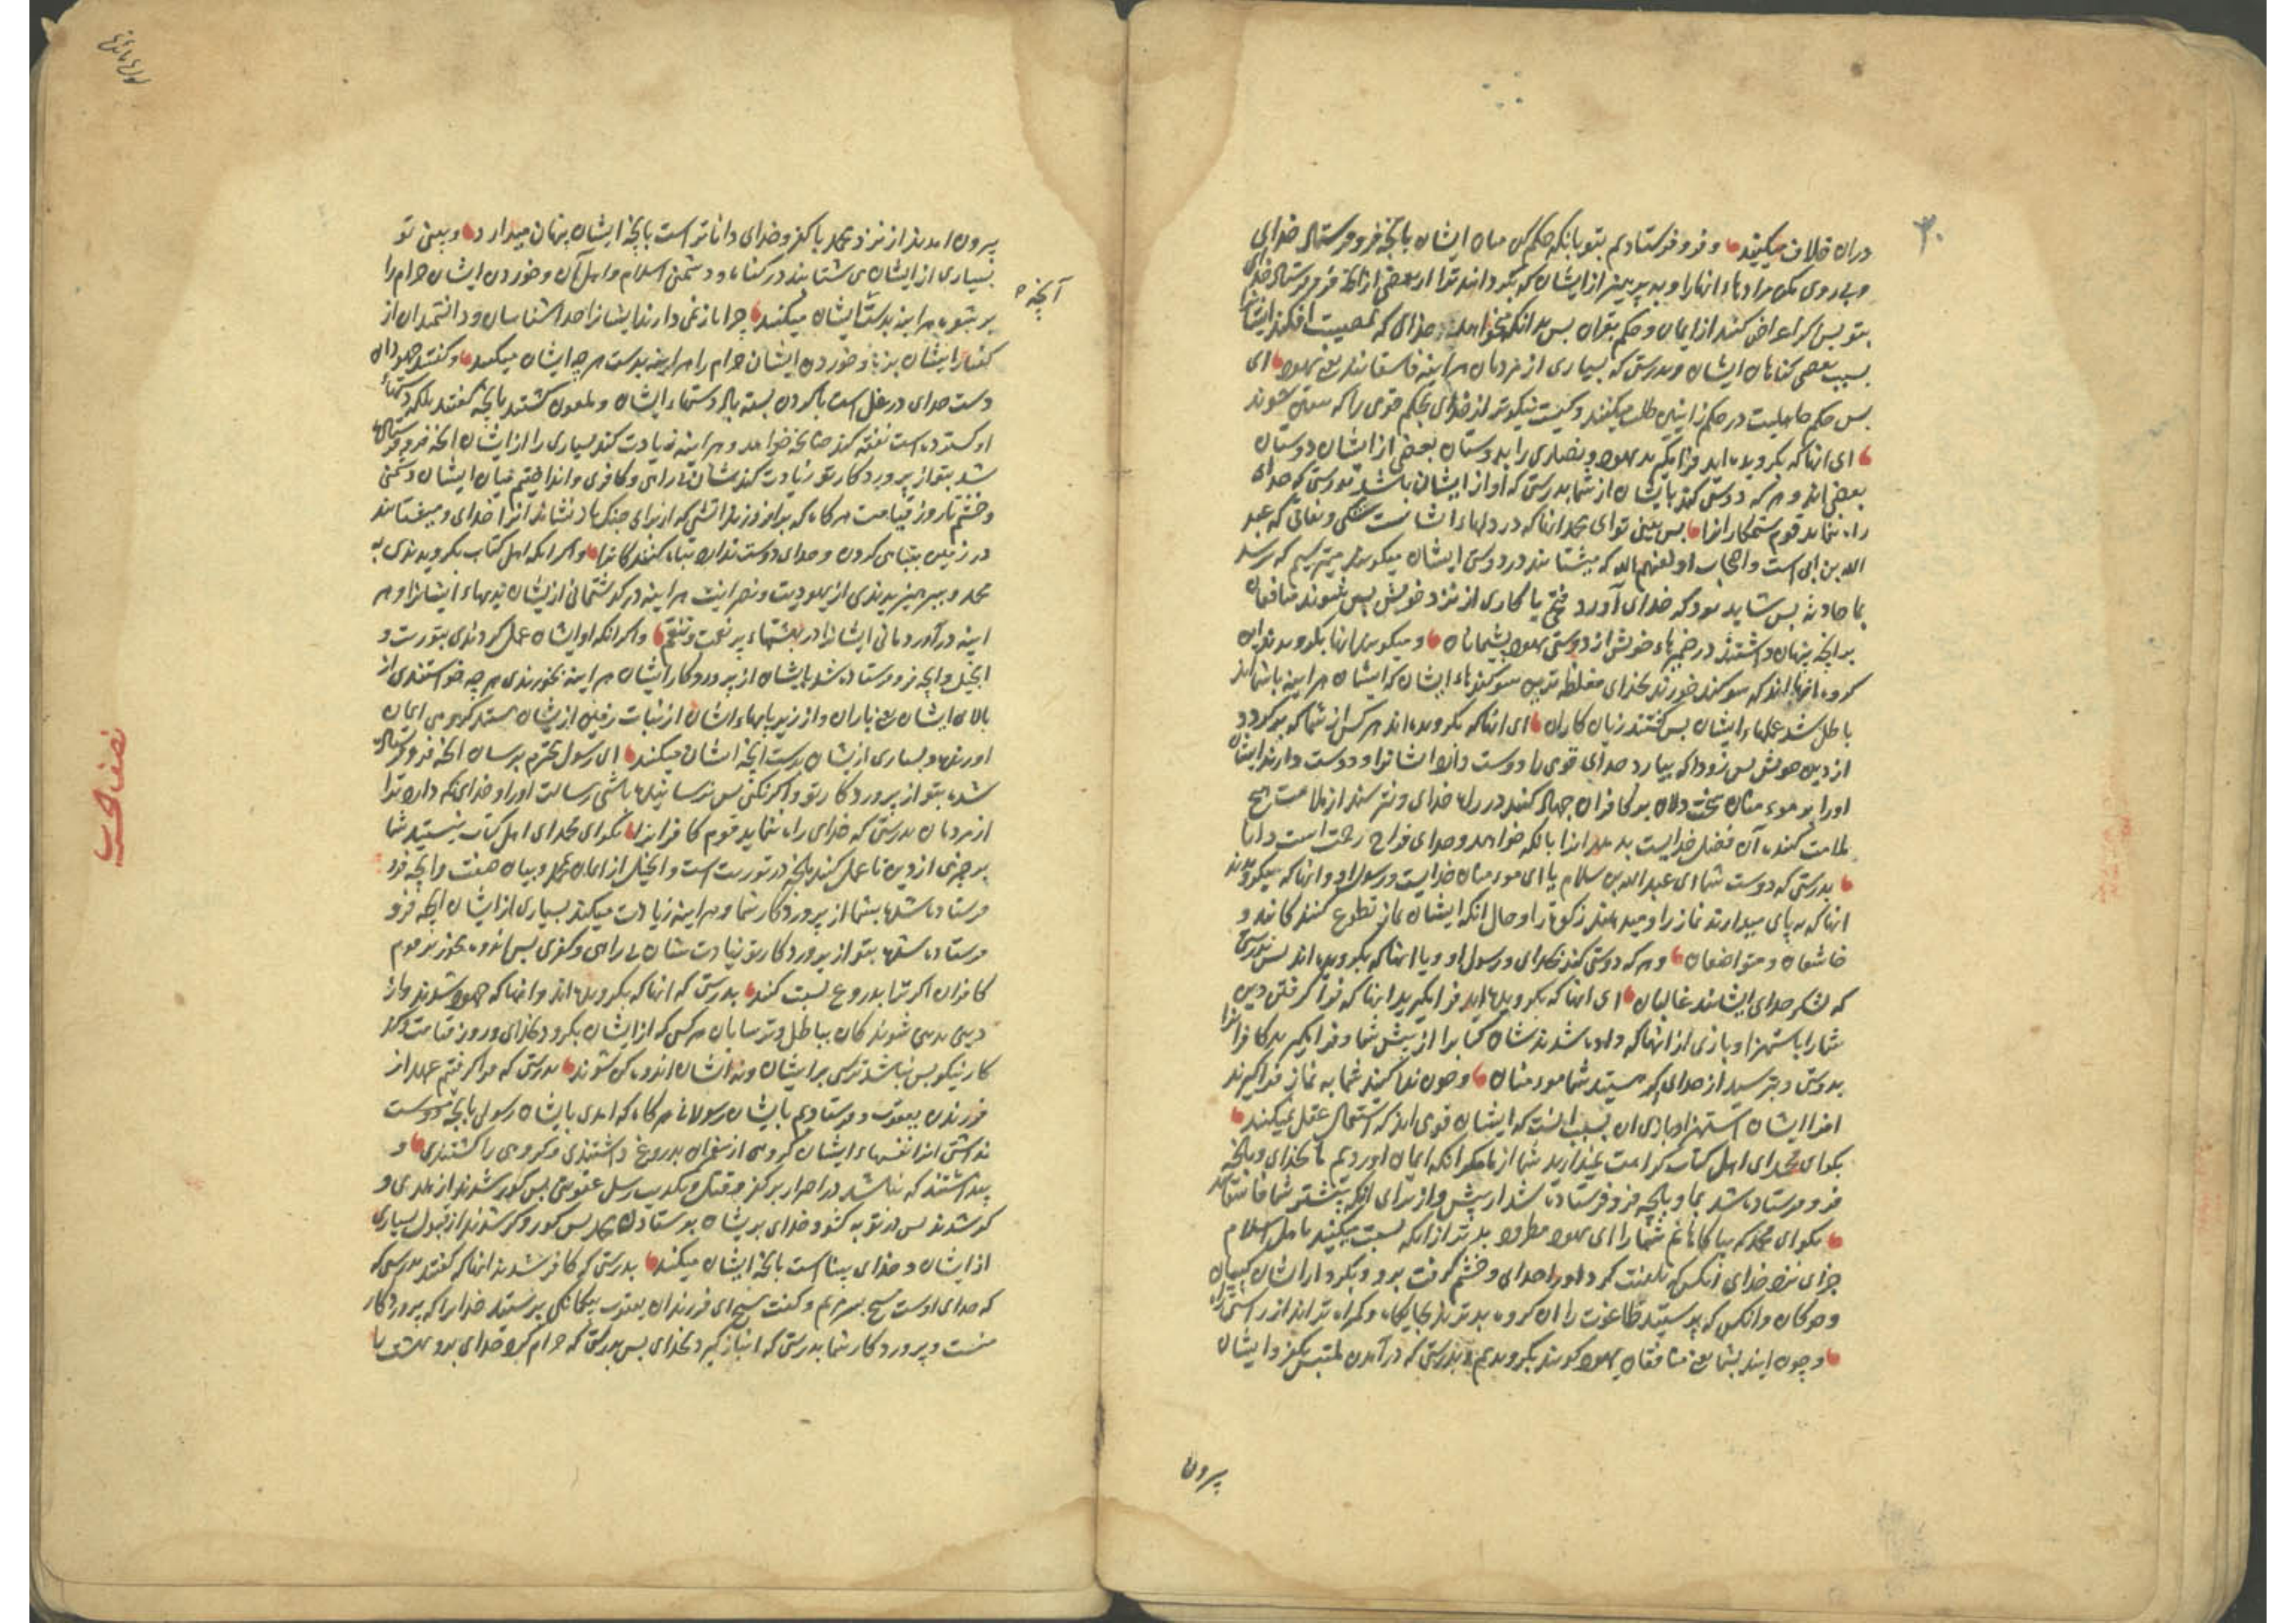 ۳۰
دران خلاف میکنید و فرو فرستادیم بتو بانکه حکم کن میان ایشان بانچه فرو فرستاد خدای
و پی روی مکن مرادهاء انها را و بپرهیز از ایشان که بگردانند ترا از بعضی از انچه فرو فرستاد خدای
بتو پس اگر اعراض کنند از ایمان و حکم بقران پس بدانکه میخواهد خدای که مصیبت افکند ایشانرا
بسبب بعضی کناهان ایشان و بدرستی که بسیاری از مردمان هراینه فاسقانند یعنی یهود ای
پس حکم جاهلیت در حکم زانیین طلب میکنند و کیست نیکوتر از خدای بحکم قومی را که یقین شوند
ای انها که بگرویده اید فرا مگیرید یهود و نصاری را بدوستان بعضی از ایشان دوستان
بعضی اند و هر که دوستی کند بایشان از شما بدرستی که او از ایشان باشد بدرستی که خدای
راه ننماید قوم ستمکارانرا پس بینی تو ای محمد انها که در دلهاء ایشانست شکی و نفاقی که عبد
الله بن ابی است و اصحاب او لعنهم الله که میشتابند در دوستی ایشان میکویند میترسیم که برسد
بما حادثه پس شاید بود که خدای آورد فتح یا کاری از نزد خویش پس شوند منافقان
بر انچه پنهان داشتند در ضمیرهاء خویش از دوستی یهود پشیمانان و میکویند انها بگرویدند این
کروه انهااند که سوکند خورند بخدای مغلظه ترین سوکندهاء ایشان که ایشان هراینه باشمااند
باطل شد عملهاء ایشان پس کشتند زیان کاران ای انها که بگرویده اند هر کس از شما که برگردد
از دین خویش پس زود که بیارد خدای قومی را دوست دارد ایشانرا و دوست دارند ایشان
اورا بر مومنان سخت دلان بر کافران جهاد کنند در راه خدای و نترسند از ملامت هیچ
ملامت کننده آن فضل خدایست بدهد انرا بانکه خواهد و خدای فراخ رحمت است دانا
بدرستی که دوست شما ای عبدالله بن سلام یا ای مومنان خدایست و رسول او و انها که میکرویدند
انها که به پای میدارند نماز را و میدهند زکوة را و حال انکه ایشان نماز تطوع کنندکانند و
خاشعان و متواضعان و هر که دوستی کند بخدای و رسول او و با انها که بگرویده اند پس بدرستی
که لشکر خدای ایشانند غالبان ای انها که بگرویده اید فرا مگیرید انها که فرا گرفتند دین
شما را باستهزا و بازی از انها که داده شدند شان کتاب را از پیش شما و فرا مگیرید کافرانرا
بدوستی و بترسید از خدای اگر هستید شما مومنان و چون ندا کنید شما به نماز فراگیرند
انرا ایشان استهزا و بازی ان بسبب انست که ایشان قومی اند که استعمال عقل نمیکنند
بکو ای محمد ای اهل کتاب کراهت نمیدارید شما از ما مگر انکه ایمان اوردیم ما بخدای و بانچه
فرو فرستاده شد بما و بانچه فرو فرستاده شد از پیش و از برای انکه بیشتر شما فاسقانند
بکو ای محمد که بیاگاهانم شما را ای یهود مطرود بدتر از انکه نسبت میکنید باهل اسلام
جزای نزد خدای انکس که لعنت کرد او را خدای و خشم گرفت برو و بکردار ایشان کپیان
و خوکان و انکس که پرستید طاغوت را ان کروه بدترند بجایگاه و گمراه تراند از راستی راه
و چون ایند بشما یعنی منافقان یهود کویند بگرویدیم و بدرستی که درآمدند ملتبس بکفر و ایشان
بیرون
بیرون امدند از نزد محمد باکفر و خدای داناتر است بانچه ایشان پنهان میدارند و بینی تو
بسیاری از ایشان می شتابند در کناه و دشمنی اسلام و اهل آن و خوردن ایشان حرام را
آنچه
بر شوه هراینه بدست آنچه ایشان میکنند چرا باز نمی دارند ایشانرا خداشناسان و دانشمندان از
کفتار ایشان بزه و خوردن ایشان حرام را هراینه بدست هر چه ایشان میکنند و کفتند جهودان
دست خدای در غل است باکردن بسته باد دستهاء ایشان و ملعون کشتند بانچه کفتند بلکه دستهاء
او کسترده است نفقه کند چنانچه خواهد و هراینه زیادت کند بسیاری را از ایشان انچه فرو فرستاده
شد بتو از پروردکار تو زیادت کند شان بی راهی و کافری و انداختیم میان ایشان دشمنی
و خشم تا روز قیامت هرکاه که برافروزند اتشی که از برای جنک باد نشاند انرا خدای و میشتابند
در زمین بتباهی کردن و خدای دوست ندارد تباه کنندکانرا و اگر انکه اهل کتاب بگرویدندی به
محمد و بپرهیزیدندی از یهودیت و نصرانیت هراینه درکذشتمانی از یشان بدیهاء ایشانرا و هر
اینه درآوردمانی ایشانرا در بهشتهاء پر نعمت و تنعم و اگر انکه او ایشان عمل کردندی بتوریت و
انجیل و انچه فرو فرستاده شد بایشان از پروردکار ایشان هراینه بخورندی هر چه خواستندی از
بالای ایشان یعنی باران و از زیر پایهاء ایشان از نبات زمین از یشان هستند کروهی ایمان
اورنده و بسیاری از یشان بدست انچه ایشان میکنند ای رسول محترم برسان انچه فرو فرستاده
شده بتو از پروردکار تو و اگر نکنی پس نرسانیده باشی رسالت او را و خدای نکه دارد ترا
از مردمان بدرستی که خدای راه ننماید قوم کافرانرا بکو ای محمد ای اهل کتاب نیستید شما
بر چیزی از دین تا عمل کنید بانچه در توریت است و انجیل از ایمان محمد و بیان صفت و انچه فرو
فرستاده شد بشما از پروردکار شما و هراینه زیادت میکند بسیاری از ایشان انچه فرو
فرستاده شد بتو از پروردکار تو زیادت شان بی راهی و کفری پس اندوه مخور بر قوم
کافران اگر ترا بدروغ نسبت کنند بدرستی که انها که بگرویده اند و انها که جهود شدند و از
دینی بدینی شوندکان بباطل و ترسایان هر کس که از ایشان بگرود بخدای و روز قیامت و کند
کار نیکو پس نباشد ترسی بر ایشان و نه ایشان اندوهکن شوند بدرستی که فرا گرفتیم عهد از
فرزندان یعقوب و فرستادیم بایشان رسولانی هرگاه که امدی بایشان رسول بانچه دوست
نداشتی انرا نفسهاء ایشان کروهی از پیغمبران بدروغ داشتندی و کروهی را کشتندی و
پنداشتند که نباشد در اصرار بر کفر و قتل و تکذیب رسل عقوبتی پس کور شدند از هدی و
کر شدند پس در توبه کشود خدای بریشان بفرستادن محمد پس کور و کر شدند از قبول بسیاری
از ایشان و خدای بیناست بانچه ایشان میکنند بدرستی که کافر شدند انها که کفتند بدرستی که
که خدای اوست مسیح پسر مریم و کفت مسیح ای فرزندان یعقوب بیگانگی پرستید خدایرا که پروردکار
منست و پروردکار شما بدرستی که انباز گیرد بخدای پس بدرستی که حرام کرد خدای برو بهشت را
نصف الحزب